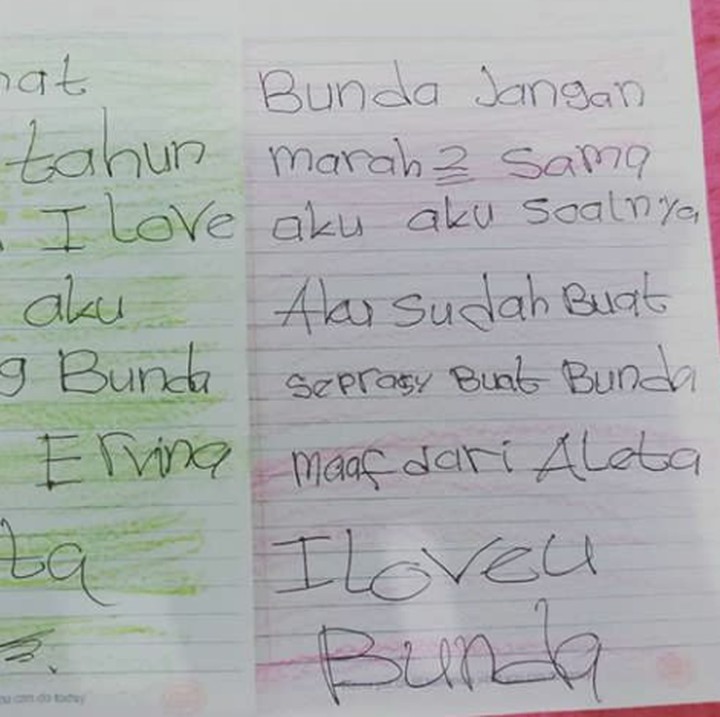 hat
tahun
I love
aku
g Bunda
Ervina
ta
ou can do today
Bunda Jangan
marah2 sama
aku aku soalnya
Aku sudah Buat
seprasy Buat Bunda
maaf dari ALeta
I Love u
Bunda